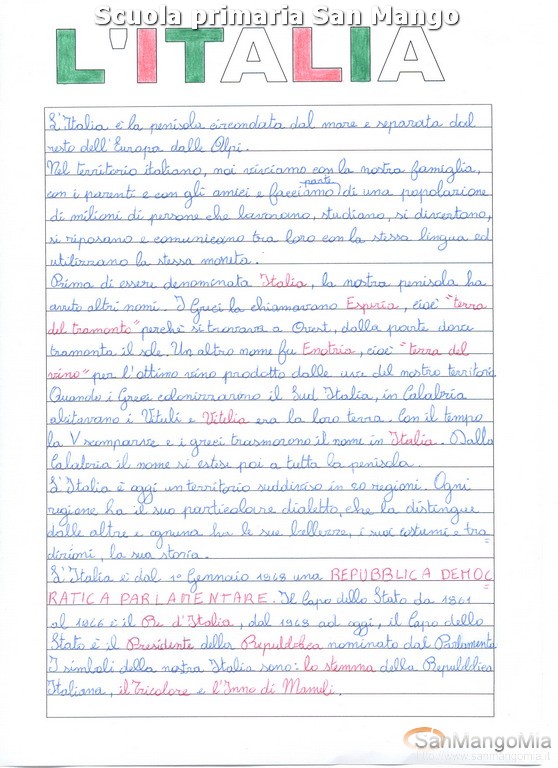 Scuola primaria San Mango
L'ITALIA
L'Italia è la penisola circondata dal mare e separata dal
resto dell'Europa dalle Alpi.
Nel territorio italiano, noi viviamo con la nostra famiglia,
parte
con i parenti e con gli amici e facciamo di una popolazione
di milioni di persone che lavorano, studiano, si divertono,
si riposano e comunicano tra loro con la stessa lingua ed
utilizzano la stessa moneta.
Prima di essere denominata Italia, la nostra penisola ha
avuto altri nomi. I Greci la chiamavano Esperia, cioè "terra
del tramonto" perchè si trovava a Ovest, dalla parte dove
tramonta il sole. Un altro nome fu Enotria, cioè "terra del
vino" per l'ottimo vino prodotto dalle uve del nostro territorio.
Quando i Greci colonizzarono il Sud Italia, in Calabria
abitavano i Vituli e Vitelia era la loro terra. Con il tempo
la V scomparve e i greci trasmorono il nome in Italia. Dalla
Calabria il nome si estese poi a tutta la penisola.
L'Italia è oggi un territorio suddiviso in 20 regioni. Ogni
regione ha il suo particolare dialetto, che la distingue
dalle altre e ognuna ha le sue bellezze, i suoi costumi e tra=
dizioni, la sua storia.
L'Italia è dal 1° Gennaio 1948 una REPUBBLICA DEMOC=
RATICA PARLAMENTARE. Il Capo dello Stato da 1861
al 1946 è il Re d'Italia, dal 1948 ad oggi, il Capo dello
Stato è il Presidente della Repubblica nominato dal Parlamento.
I simboli della nostra Italia sono: lo stemma della Repubblica
Italiana, il Tricolore e l'Inno di Mameli.
SanMangoMia
http://www.sanmangomia.it